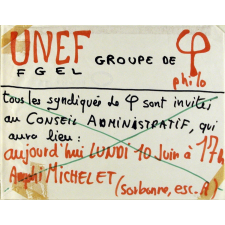 UNEF GROUPE DE φ
FGEL philo
tous les syndiqués de φ sont invités
au CONSEIL ADMINISTRATIF, qui
aura lieu :
aujourd'hui LUNDI 10 Juin à 17h
Amphi MICHELET (Sorbonne, esc. A)